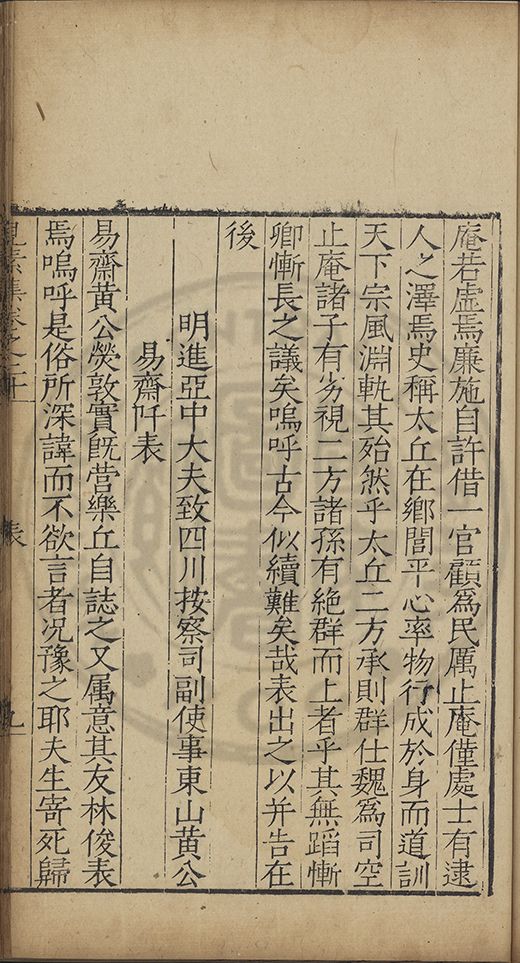 庵若虛焉廉施自許借一官顧爲民厲止庵僅處士有逮
人之澤焉史稱太丘在鄉閭平心率物行成於身而道訓
天下宗風淵軌其殆然乎太丘二方承則群仕魏爲司空
止庵諸子有劣視二方諸孫有絕群而上者乎其無蹈慚
卿慚長之議矣嗚呼古今似續難矣哉表出之以并告在
後
明進亞中大夫致四川按察司副使事東山黃公
易齋阡表
易齋黃公熒敦實旣營樂丘自誌之又属意其友林俊表
焉嗚呼是俗所深諱而不欲言者况豫之耶夫生寄死歸
見素集卷之二十
表
九